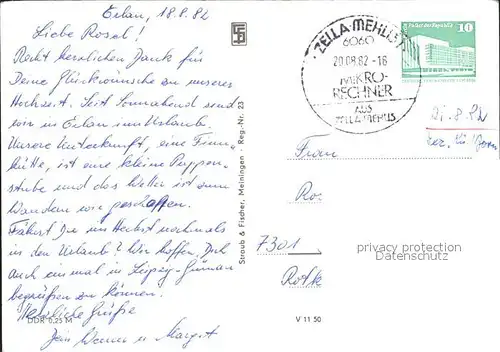 Erlau, 18.8.82
Liebe Rosel!
Recht herzlichen Dank für
Deine Glückwünsche zu unserer
Hochzeit. Seit Sonnabend sind
wir in Erlau im Urlaub.
Unsere Unterkunft, eine Finn-
hütte, ist eine kleine Puppen-
stube und das Wetter ist zum
Wandern wie geschaffen.
Fährst Du im Herbst nochmals
in den Urlaub? Wir hoffen, Dich
auch einmal in Leipzig-
begrüßen zu können.
Herzliche Grüße
Dein Werner u. Margit
DDR 0,25 M
Straub & Fischer, Meiningen · Reg.-Nr. 23
ZELLA-MEHLIS 1
6060
20.08.82-16
MIKRO-
RECHNER
AUS
ZELLA-MEHLIS
Palast der Republik
10
DDR
21.8.82
Frau
Ro
7301
V 11 50
privacy protection
Datenschutz